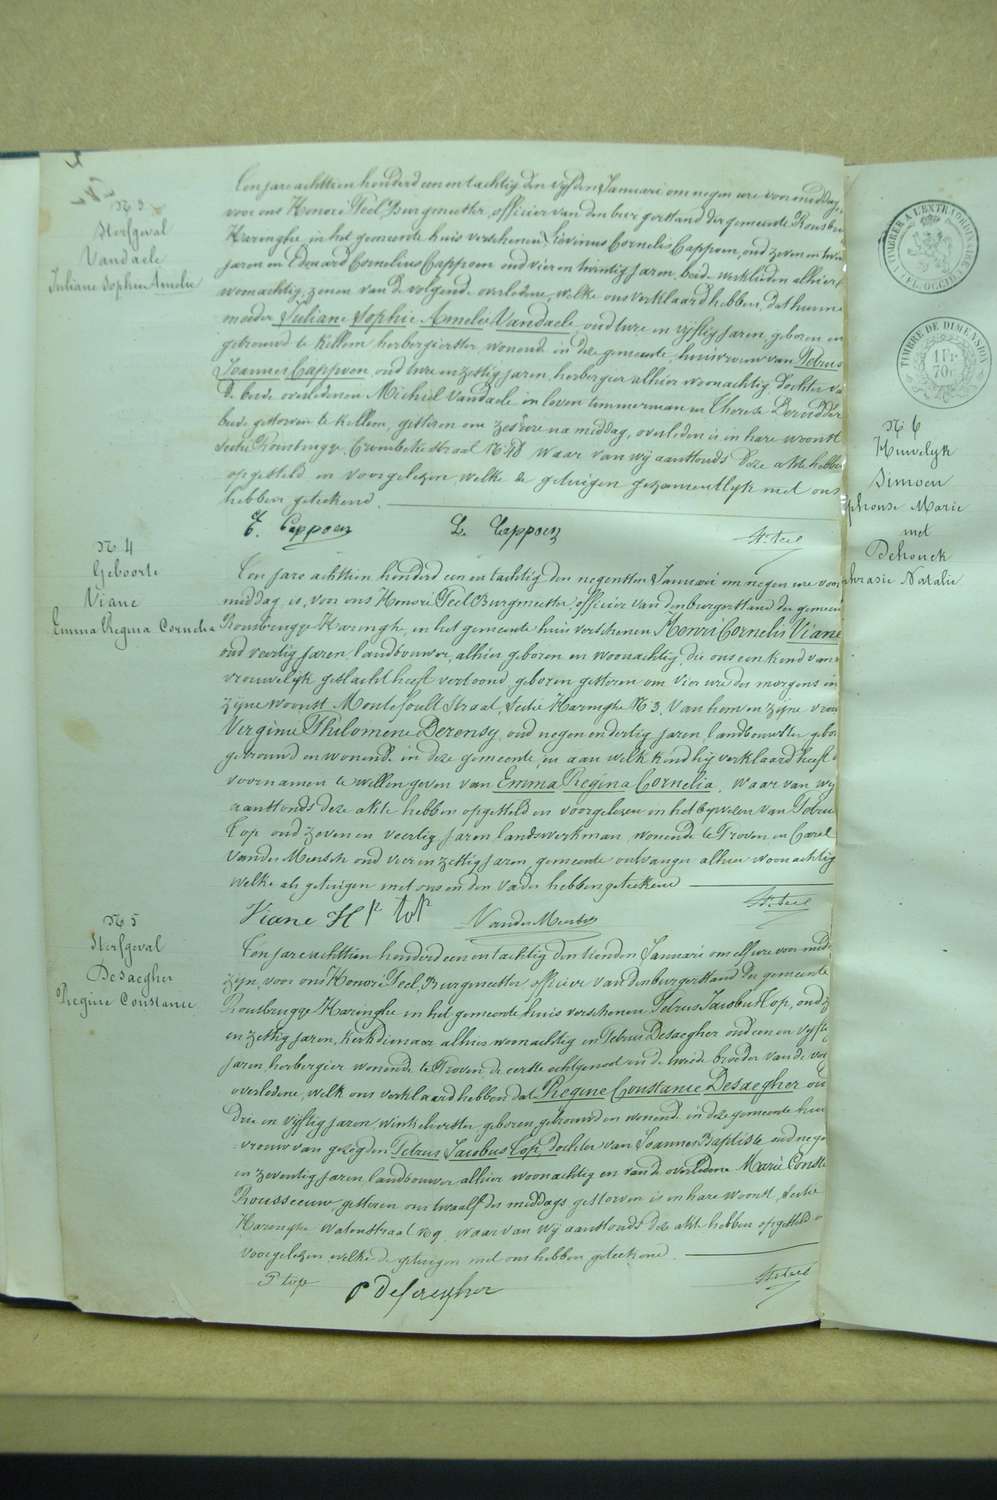 N 3
Sterfgeval
Vandaele
Juliane Sophie Amelie
Ten jare achttien honderd een en tachtig den vijfden Januari om negen ure voormiddag,
voor ons Honoré Teel Burgmeester, officier van den burgerstand der gemeente Rousbru
Haringhe, in het gemeente huis verschenen Livinus Cornelis Cappoen, oud zeven en twin
jaren en Edouard Cornelius Cappoen oud vier en twintig jaren, beide werklieden alhier
woonachtig, zonen van de volgende overledene, welke ons verklaard hebben, dat hunne
moeder Juliane Sophie Amelie Vandaele, oud twee en vijftig jaren, geboren en
getrouwd te Killem herbergierster, wonende in deze gemeente, huisvrouw van Petrus
Joannes Cappoen, oud twee en zestig jaren, herbergier alhier woonachtig, dochter va
de beide overledenen Michiel Vandaele in leven timmerman en Therese Derudder
beide gestorven te Killem, gisteren om zes ure na middag, overleden is in hare woonst
sectie Rousbrugge, Crombekestraat N 48 Waar van wij aanstonds deze akte hebben
opgesteld en voorgelezen, welke de getuigen gezamentlyk met ons
hebben geteekend.
E. Cappoen L. Cappoen H. Teel
N 4
Geboorte
Viane
Emma Regina Cornelia
Ten jare achttien honderd een en tachtig den negensten Januari om negen ure voor
middag is, voor ons Honoré Teel Burgmeester, officier van den burgerstand der gemeen
Rousbrugge Haringhe, in het gemeente huis verschenen Henri Cornelis Viane
oud veertig jaren, landbouwer, alhier geboren en woonachtig, die ons een kind van
vrouwelyk geslacht heeft vertoond, geboren gisteren om vier ure des morgens in
zijne woonst Straat, sectie Haringhe N 3. Van hem en zijne vrouw
Virginie Philomene Derensy, oud negen en dertig jaren, landbouwster, gebo
getrouwd en wonende in deze gemeente, en aan welk kind hij verklaard heeft
voornamen te willen geven van Emma Regina Cornelia. Waar van wij
aanstonds deze akte hebben opgesteld en voorgelezen in het bijwezen van Petrus
Top oud zeven en veertig jaren, landswerkman, wonende te Proven en Carel
Vander Meersch oud vier en zestig jaren, gemeente ontvanger alhier woonachtig
welke als getuigen met ons en den vader hebben geteekend
Viane H P top VanderMeersch H. Teel
N 5
Sterfgeval
Desaegher
Regine Constance
Ten jare achttien honderd een en tachtig den tienden Januari om elf ure voor mid
zijn, voor ons Honoré Teel, Burgmeester officier van den burgerstand der gemeente
Rousbrugge Haringhe in het gemeente huis verschenen Petrus Jacobus Top, oud z
en zestig jaren, kerkdienaar alhier woonachtig en Petrus Desaegher oud een en vyfti
jaren herbergier wonende te Proven, de eerste echtgenoot en de tweede broeder van de vol
overledene, welk ons verklaard hebben dat Regine Constance Desaegher oud
drie en vyftig jaren, winkelierster, geboren, getrouwd en wonende in deze gemeente huis
vrouw van gezegden Petrus Jacobus Top, Dochter van Joannes Baptiste oud negen
en zeventig jaren, landbouwer alhier woonachtig en van de overledene Marie Const
Rousseeuw, gisteren om twaalf des middags, gestorven is in hare woonst, sectie
Haringhe Watoustraat N 9. waar van wij aanstonds deze akte hebben opgesteld
voorgelezen welke de getuigen met ons hebben geteekend.
P top P Desaegher H. Teel
TIMBRE A L'EXTRAORDINAIRE
FL. OCCID.
TIMBRE DE DIMENSION
1 Fr
70 c
N 6
Huwelyk
Simoen
phonse Marie
met
Dehonck
phrasie Natalie